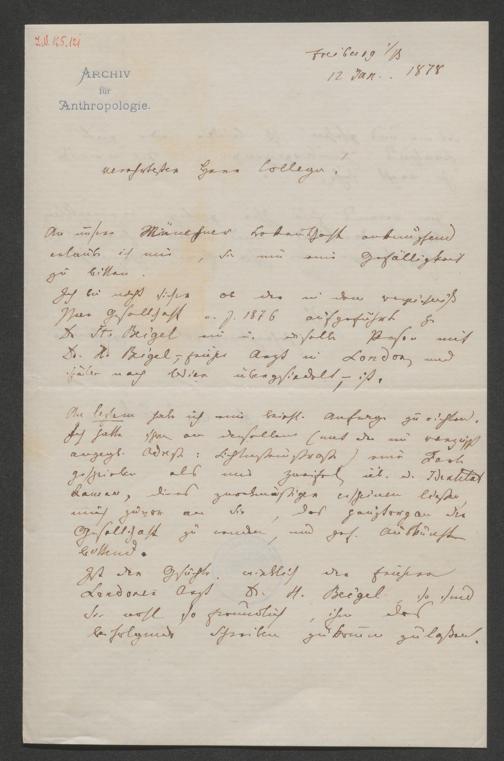 I.N. 165.121
ARCHIV
für
Anthropologie.
Freiburg i/B
12 Jan. 1878
verehrtester Herr College!
An unsere Münchner Bekanntschaft anknüpfend
erlaube ich mir, Sie um eine Gefälligkeit
zu bitten.
Ich bin nicht sicher ob der in dem Verzeichniß
Ihrer Gesellschaft v. J. 1876 aufgeführte H
Dr. St. Beigel ein u. dieselbe Person mit
Dr. H. Beigel, früher Arzt in London, und
später nach Wien übergesiedelt, ist.
An letztern habe ich eine Anfrage zu richten.
Ich hatte schon an denselben (mit der im
angegb. Adresse: Lichtensteinstrasse) eine Karte
geschrieben als mir Zweifel üb. d. Identität
kamen, die es zweckmäßiger erscheinen ließen,
mich zuvor an Sie, das Hauptorgan der
Gesellschaft zu wenden, um gef. Auskunft
bittend.
Ist der Gesuchte wirklich der frühere
Londoner Arzt Dr. H. Beigel, so sind
Sie wohl so freundlich, ihm das
beifolgende Schreiben zukommen zu laßen.